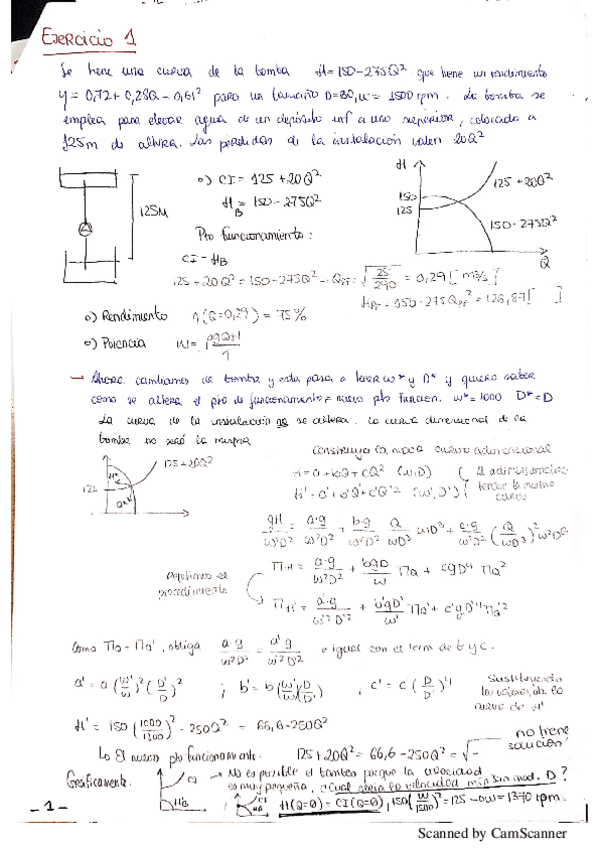 EJERCICIO 1
Se tiene una curva de la bomba H=150-275Q² que tiene un rendimiento
η=0,72+0,28Q-0,61² para un tamaño D=80, ω= 1500 rpm. La bomba se
emplea para elevar agua de un depósito inf a uno superior, colocado
a 125m de altura. Las pérdidas de la instalación valen 20Q²
125M
o) CI = 125+20Q²
H_B = 150-275Q²
Pto funcionamiento:
CI = H_B
125+20Q² = 150-275Q² → Q_PF = √(25/290) = 0,29 [m³/s]
H_PF = 150-275Q_PF² = 126,87 [ ]
H
150
125
125+20Q²
150-275Q²
Q
o) Rendimiento η(Q=0,29) = 75%
o) Potencia W = ρgQH/η
→ Ahora cambiamos de bomba y esta pasa a tener ω* y D* y quiero saber
como se altera el pto de funcionamiento = nuevo pto funcion. ω*=1000 D*=D
La curva de la instalación no se altera. La curva dimensional de la
bomba no será la misma
125+20Q²
125
Construyo la nueva curva adimensional
H = a+bQ+cQ² (ω,D)
H' = a'+b'Q'+c'Q'² (ω',D')
Al adimensionalizar
tengo la misma
curva
gH/ω²D² = a·g/ω²D² + b·g/ω²D² Q/ωD³ ωD³ + c·g/ω²D² (Q/ωD³)² ω²D⁶
Repetimos el
procedimiento
Π_H = a·g/ω²D² + bgD/ω Π_Q + cgD⁴ Π_Q²
Π_H' = a'·g/ω'²D'² + b'gD'/ω' Π_Q' + c'gD'⁴Π_Q'²
Como Π_Q = Π_Q', obliga a·g/ω²D² = a'g/ω'²D'² e igual con el term de b y c.
a' = a (ω'/ω)² (D'/D)² ; b' = b (ω'/ω)(D/D') , c' = c (D/D')⁴
Sustituyendo
los valores, da la
curva de H'
H' = 150 (1000/1500)² - 250Q² = 66,6-250Q²
Lo El nuevo pto funcionamiento. 125+20Q² = 66,6-250Q² = √-
no tiene
solución
Gráficamente.
CI
H_B
→ No es posible el bombeo porque la velocidad
es muy pequeña, ¿Cual sería la velocidad min sin mod. D?
H(Q=0) = CI(Q=0), 150(ω/1500)² = 125 → ω = 1370 rpm.
CI
H_B
-1-
Scanned by CamScanner